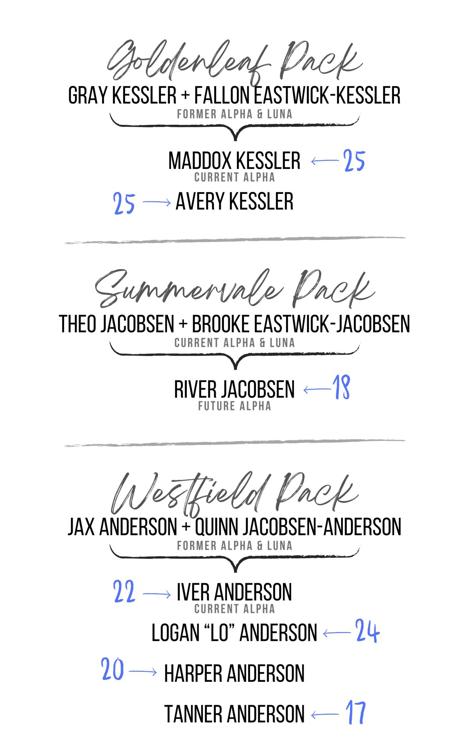 Goldenleaf Pack
GRAY KESSLER + FALLON EASTWICK-KESSLER
FORMER ALPHA & LUNA
MADDOX KESSLER ← 25
CURRENT ALPHA
25 → AVERY KESSLER
Summervale Pack
THEO JACOBSEN + BROOKE EASTWICK-JACOBSEN
CURRENT ALPHA & LUNA
RIVER JACOBSEN ← 18
FUTURE ALPHA
Westfield Pack
JAX ANDERSON + QUINN JACOBSEN-ANDERSON
FORMER ALPHA & LUNA
22 → IVER ANDERSON
CURRENT ALPHA
LOGAN “LO” ANDERSON ← 24
20 → HARPER ANDERSON
TANNER ANDERSON ← 17